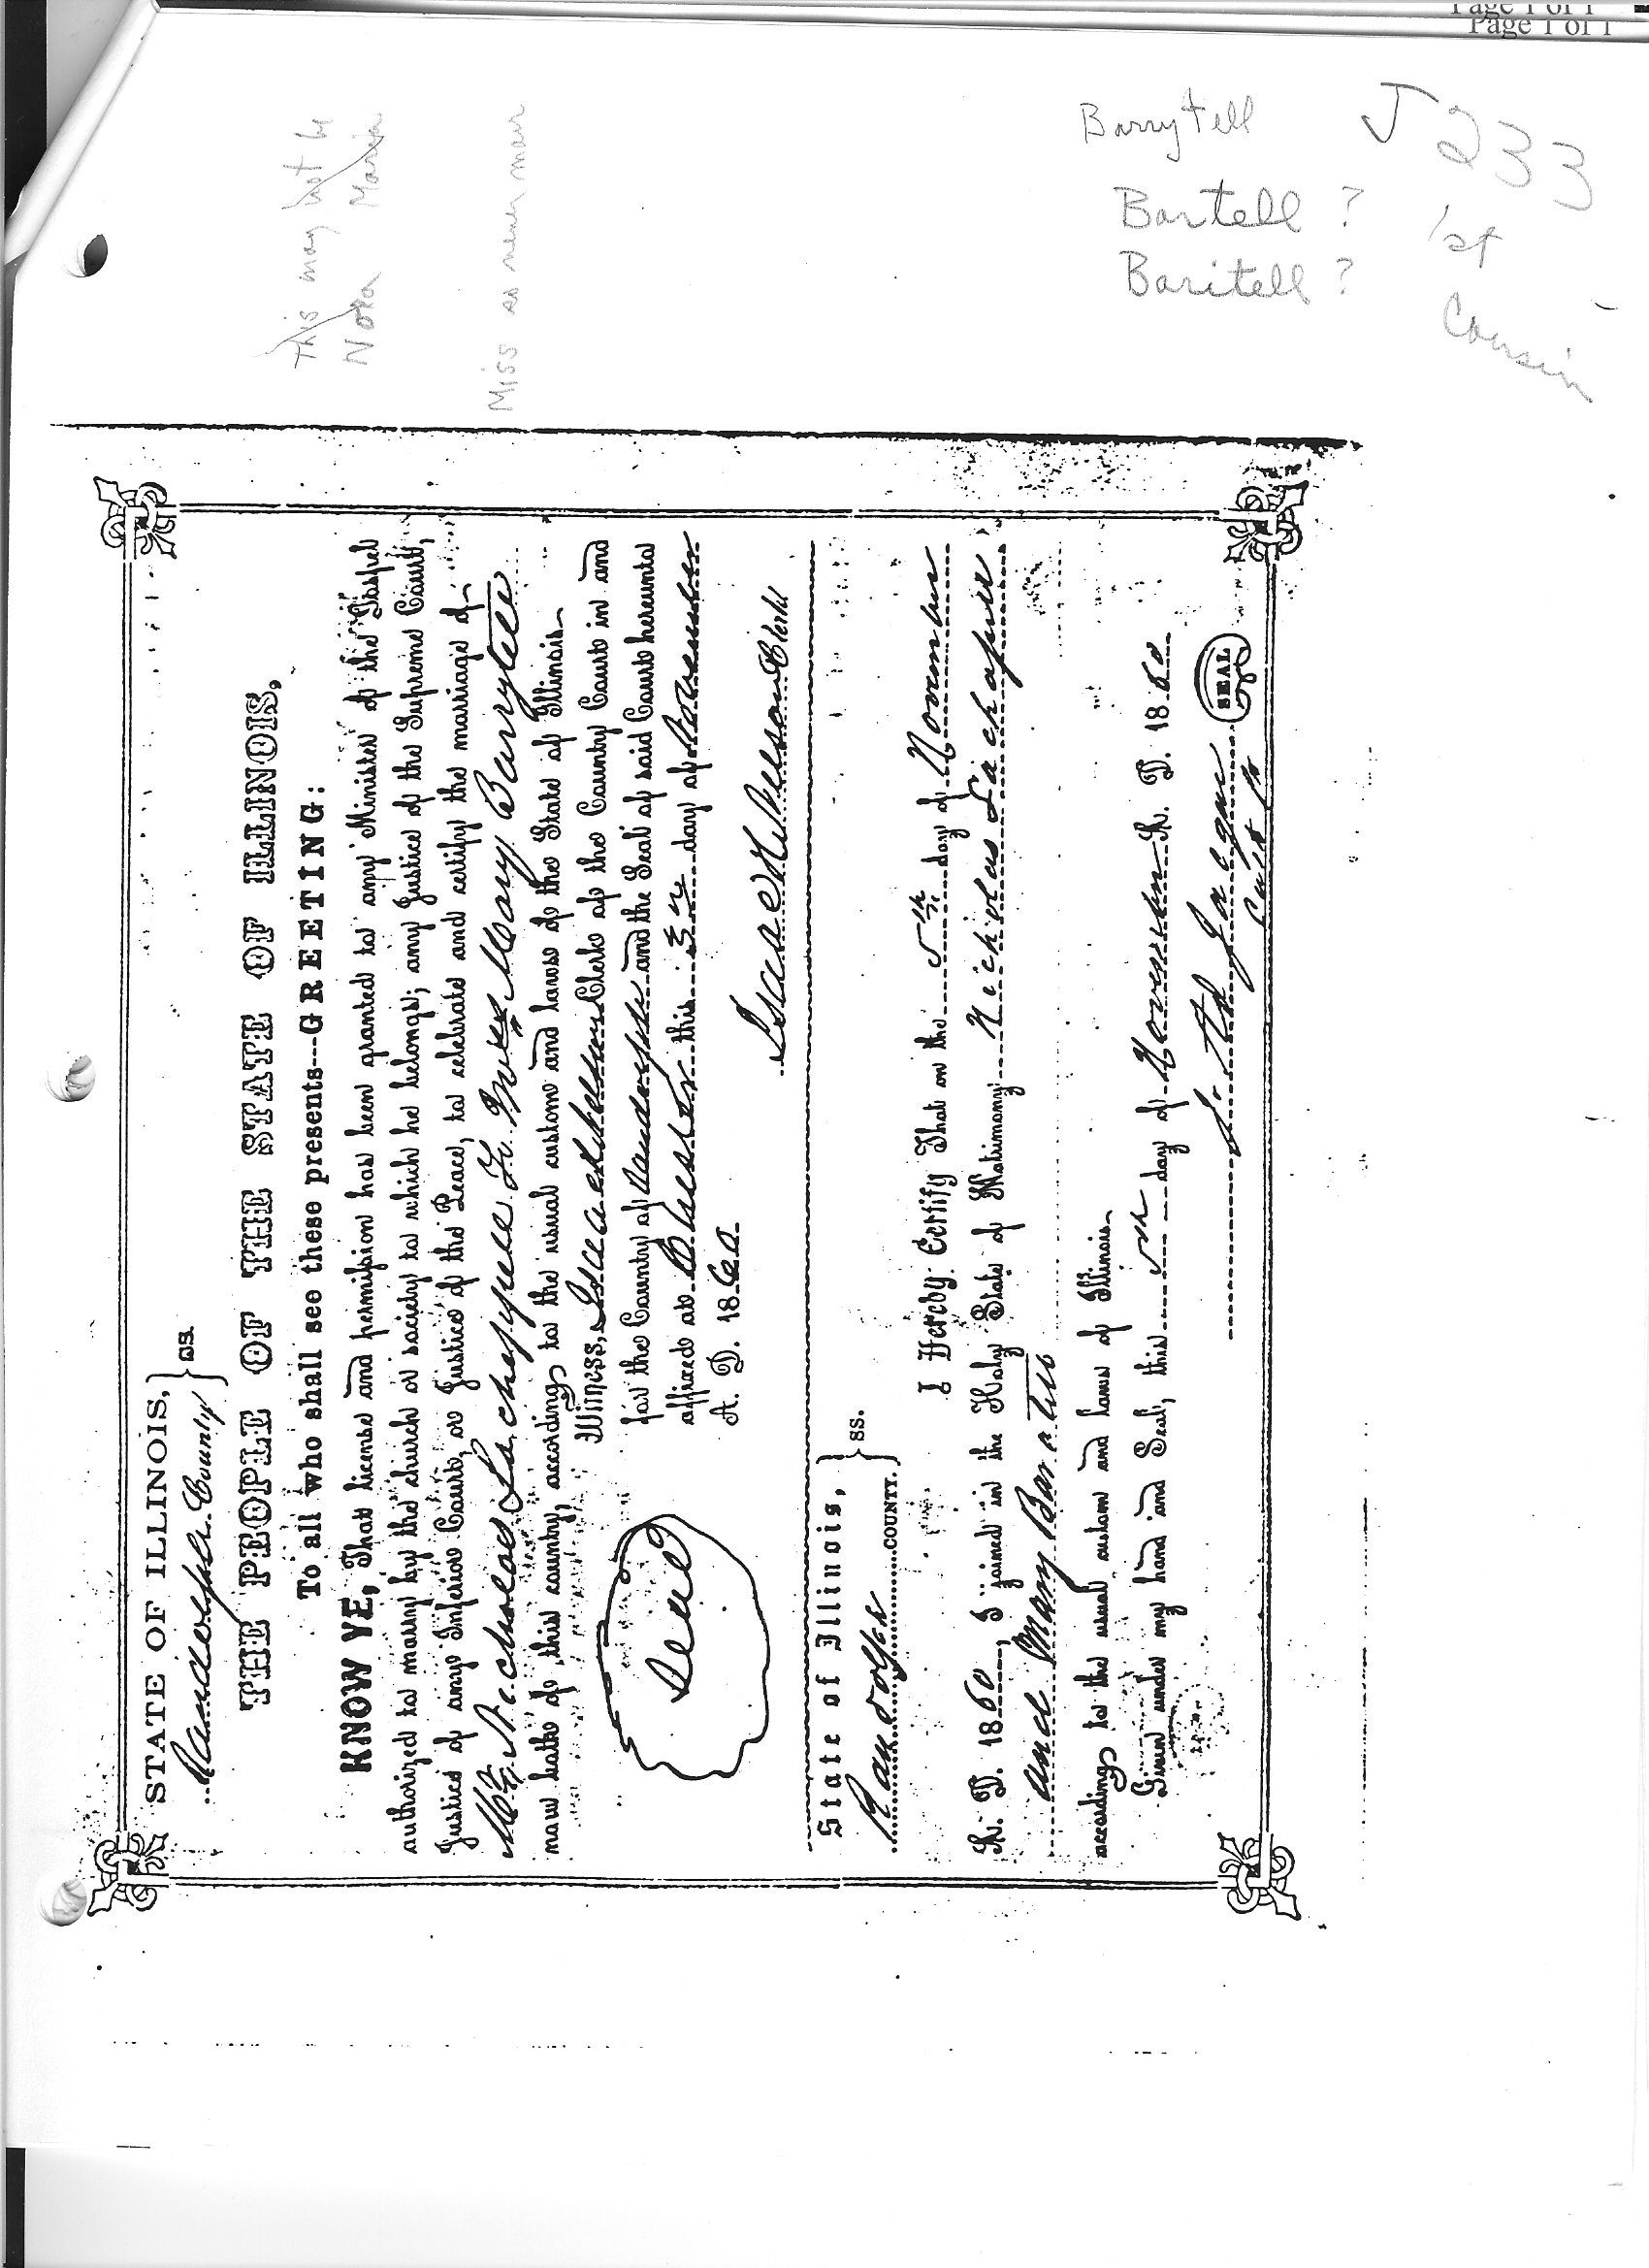 Page 1 of 1
Page 1 of 1
J 233
1st
Cousin
Barrytell
Bartell ?
Baritell ?
This may not be
Nora Maria
Miss as never mar
STATE OF ILLINOIS,
Randolph County } ss.
THE PEOPLE OF THE STATE OF ILLINOIS,
To all who shall see these presents---GREETING:
KNOW YE, That license and permission has been granted to any Minister of the Gospel
authorized to marry by the church or society to which he belongs; any Justice of the Supreme Court,
Justice of any Inferior Court, or Justice of the Peace, to celebrate and certify the marriage of
Mr. Nicholas Lachapuee To Miss Mary Barrytell
now both of this county, according to the usual custom and laws of the State of Illinois.
Witness, Isaac Clerk of the County Court in and
for the County of Randolph and the Seal of said Court hereunto
affixed at Chester this 3rd day of November
A. D. 1860
Seal
Isaac Clerk
State of Illinois,
Randolph COUNTY. } ss.
I Hereby Certify That on the 5th day of November
A. D. 1860, I joined in the Holy State of Matrimony Nicholas Lachapue
and Mary Baratell
according to the usual custom and laws of Illinois.
Given under my hand and Seal, this 5th day of November A. D. 1860
Jacque SEAL